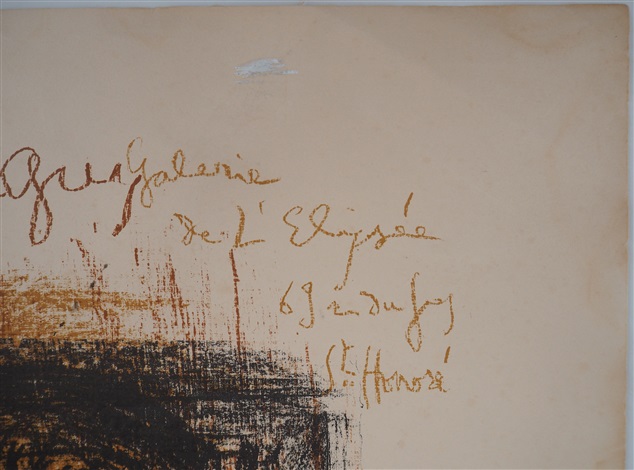 Galerie
de L' Elysée
69 r. du fg
St Honoré